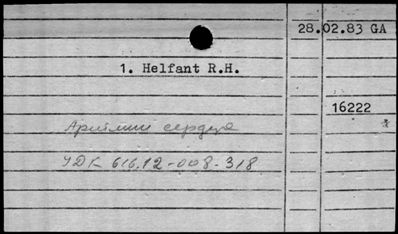 28.02.83 GA
1. Helfant R.H.
16222
*
Аритмии сердца
УДК 616.12-008-318